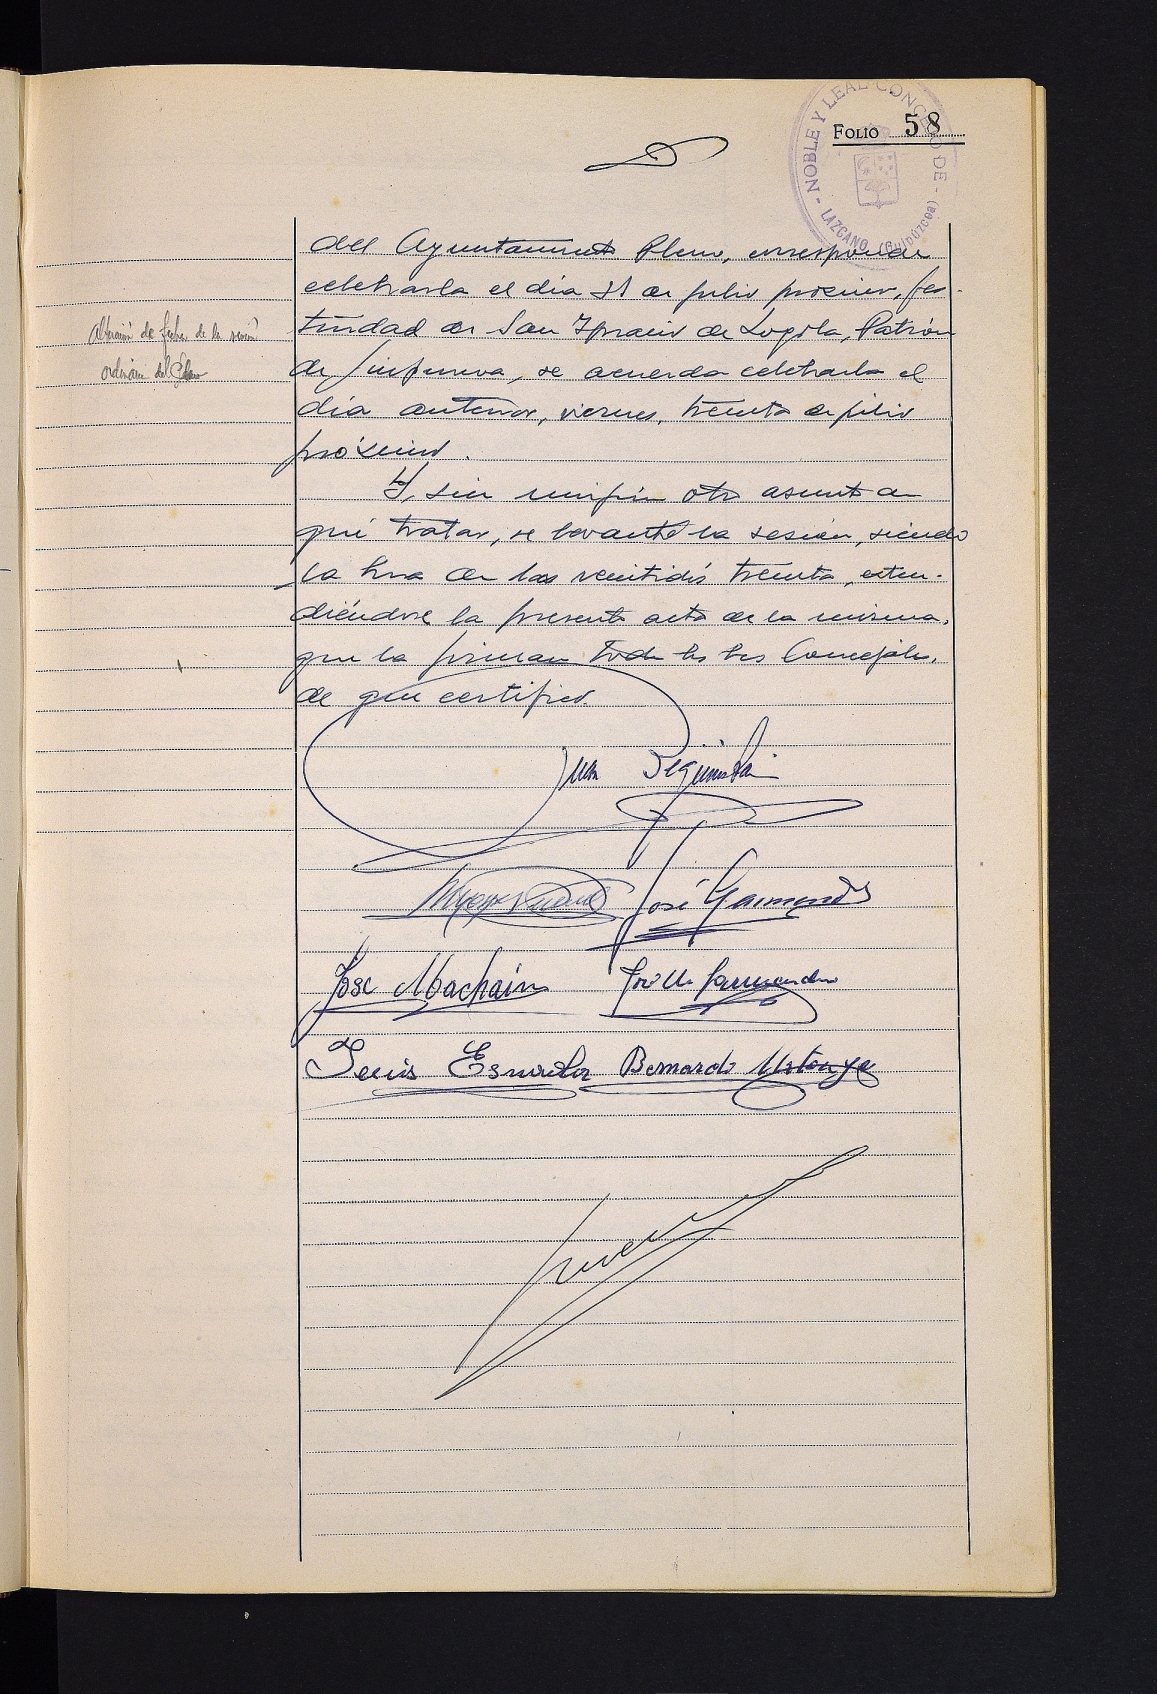 - NOBLE Y LEAL CONCEJO DE - LAZCANO (Guipúzcoa)
FOLIO 58
del Ayuntamiento Pleno, corresponde
celebrarla el día 31 de julio próximo, fes-
tividad de San Ignacio de Loyola, Patrón
de Guipúzcoa, se acuerda celebrarla el
día anterior, viernes, treinta de julio
próximo.
Y, sin ningún otro asunto de
qué tratar, se levantó la sesión, siendo
la hora de las veintidós treinta, exten-
diéndose la presente acta de la misma,
que la firman todos los Concejales,
de que certifico.
Alteración de fecha de la sesión
ordinaria del Pleno
Juan Beguiristain
José Garmendia
José Machain José M. Garmendia
Jesús Bernardo